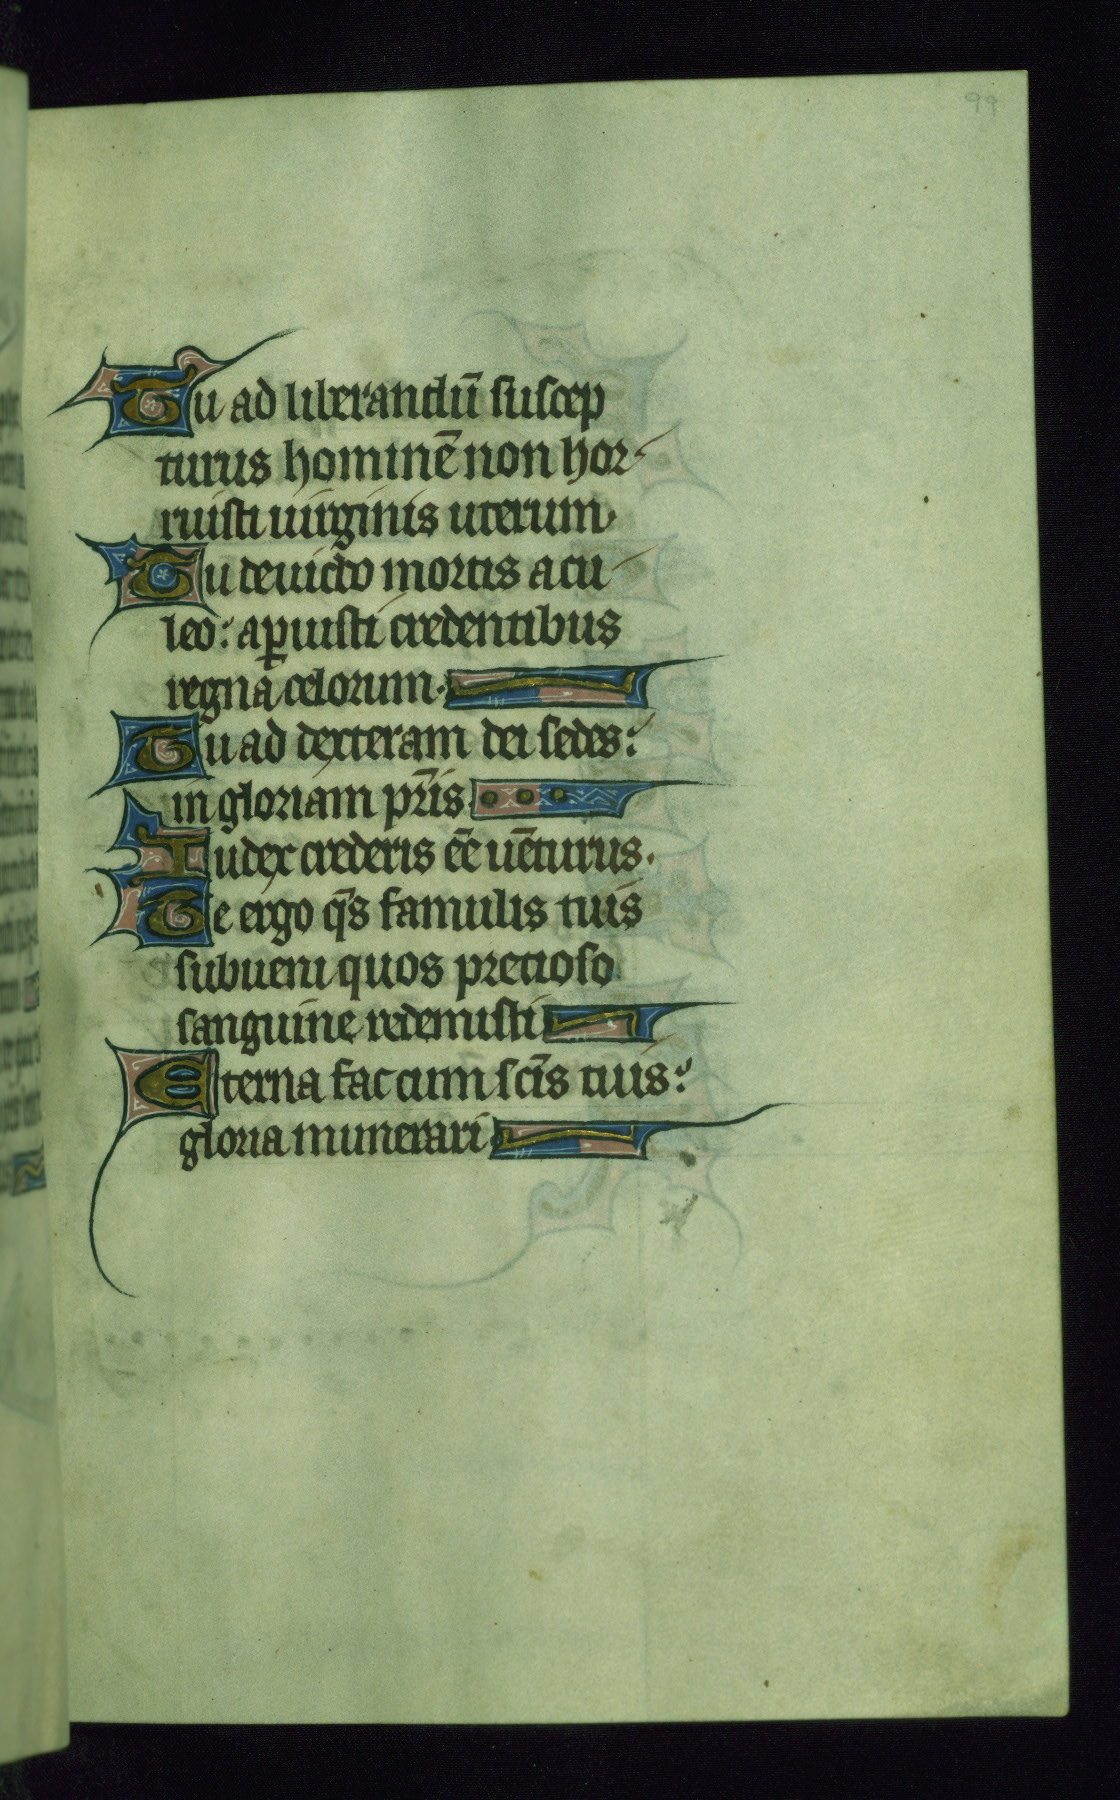 99
Tu ad liberandū suscep
turus hominē non hor
ruisti uirginis uterum.
Tu deuicto mortis acu
leo: aꝑuisti credentibus
regna celorum.
Tu ad dexteram dei sedes:
in gloriam pr̄is
Iudex crederis eē uēturus.
Te ergo q̄s famulis tuis
subueni quos precioso
sanguine redemisti
Eterna fac cum scīs tuis:
gloria munerari